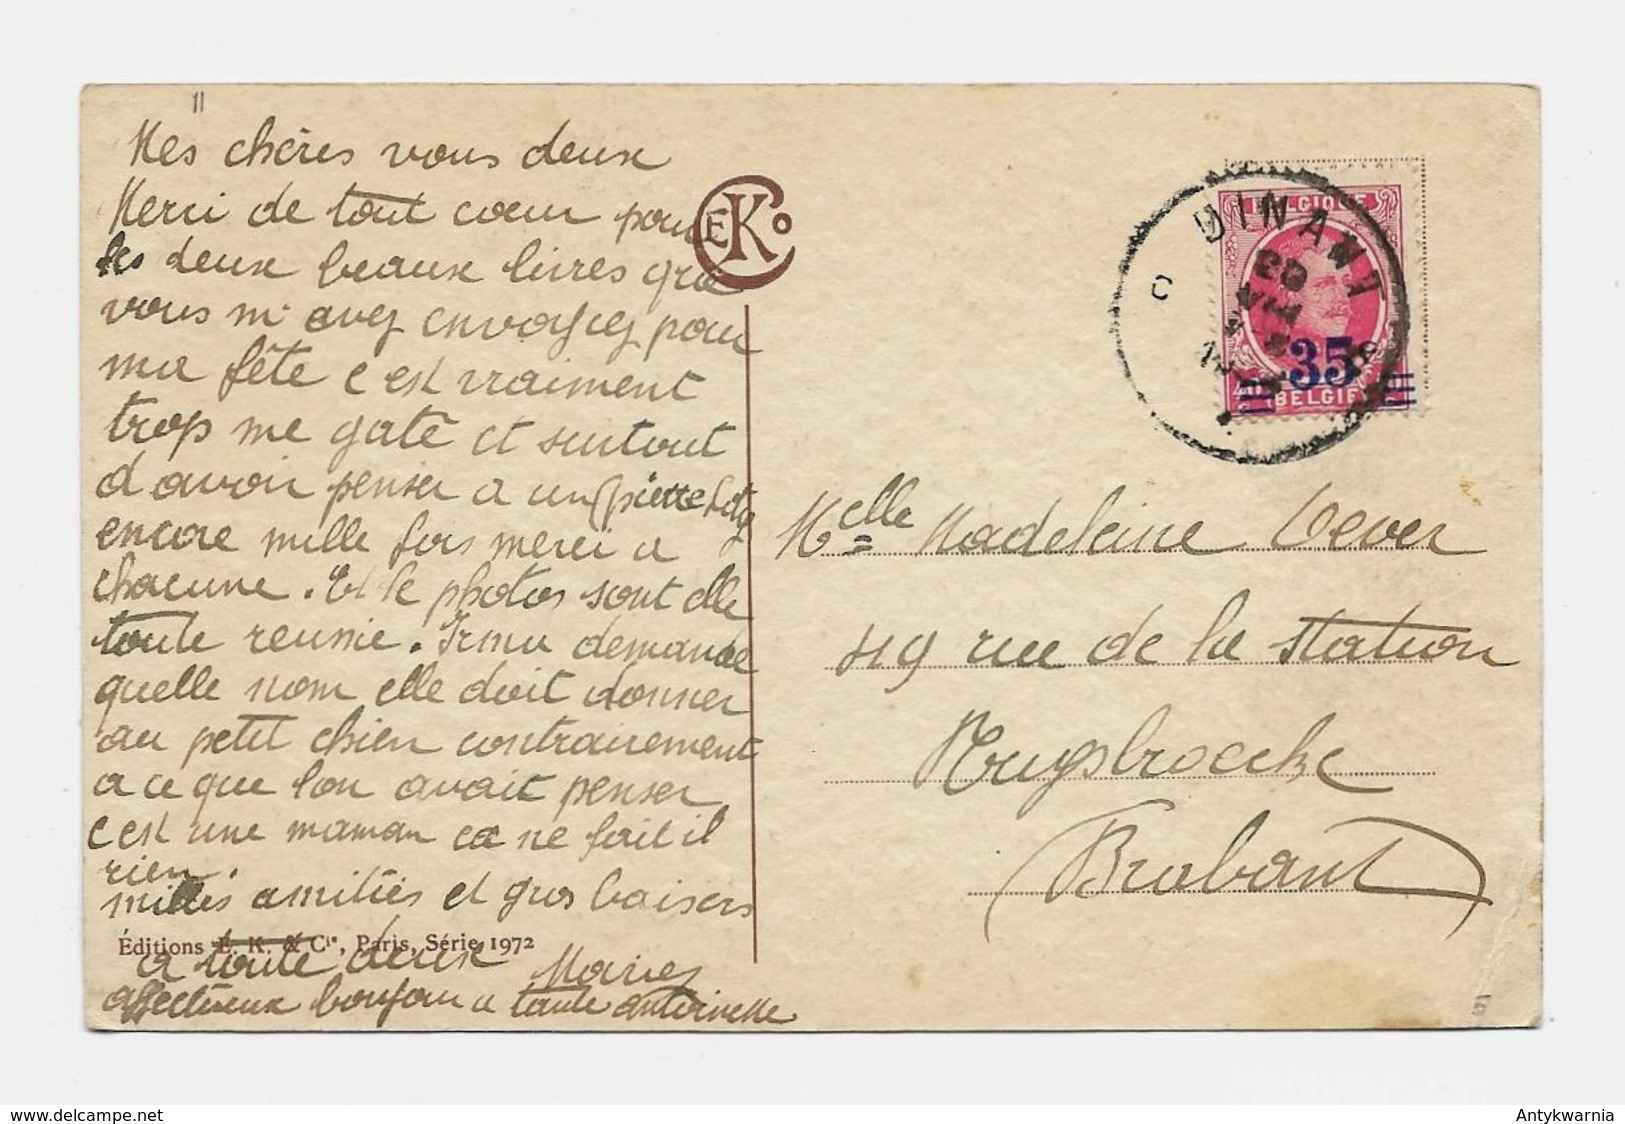 11
Mes chères vous deux
Merci de tout cœur pour
les deux beaux livres que
vous m'avez envoyez pour
ma fête c est vraiment
trop me gatè et surtout
d avoir penser a un
encore mille fois merci a
chacune. Et le photos sont elle
toute reunie. Irma demande
quelle nom elle doit donner
au petit chien contrairement
a ce que lon avait penser
c est une maman ca ne fait il
rien.
milles amitiès et gros baisers
a toute deux Mariez
affectueux bonjour a tante antoinette
EKCo
Éditions E. K. & Cie, Paris, Série 1972
DINANT
C
BELGIQUE
35c
BELGIE
Melle Madeleine
419 rue de la station
Ruysbroecke
Brabant
www.delcampe.net
Antykwarnia